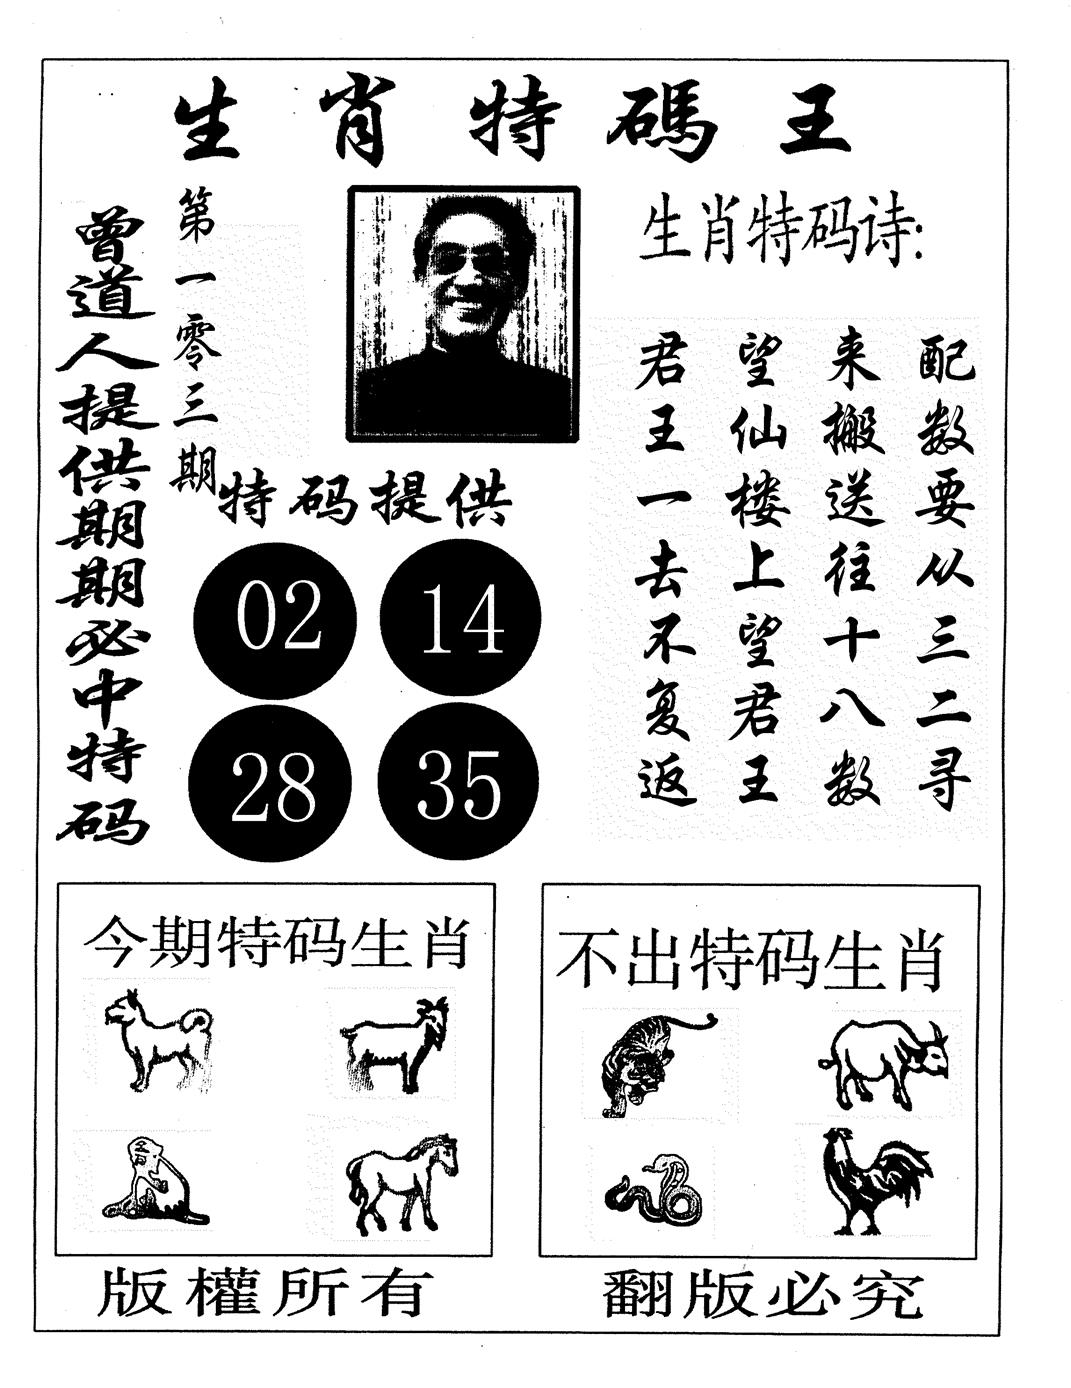 生肖特碼王
曾道人提供期期必中特码
第一零三期
生肖特码诗:
君王一去不复返
望仙楼上望君王
来搬送往十八数
配数要从三二寻
特码提供
02 14
28 35
今期特码生肖
不出特码生肖
版權所有
翻版必究